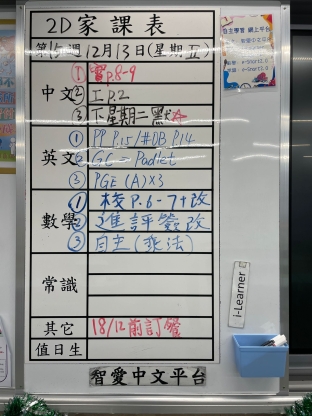 2D家課表
第15週12月13日(星期五)
中文
① 習p.8-9
② 工p.2
③ 下星期二默
英文
① PP P.15/#DB P.14
② G.C → Padlet
③ PGE (A)×3
數學
① 棧P.6-7+改
② 進評簽改
③ 自主(乘法)
常識
其它
18/12前訂餐
值日生
智愛中文平台
i-Learner
自主學習 網上平台